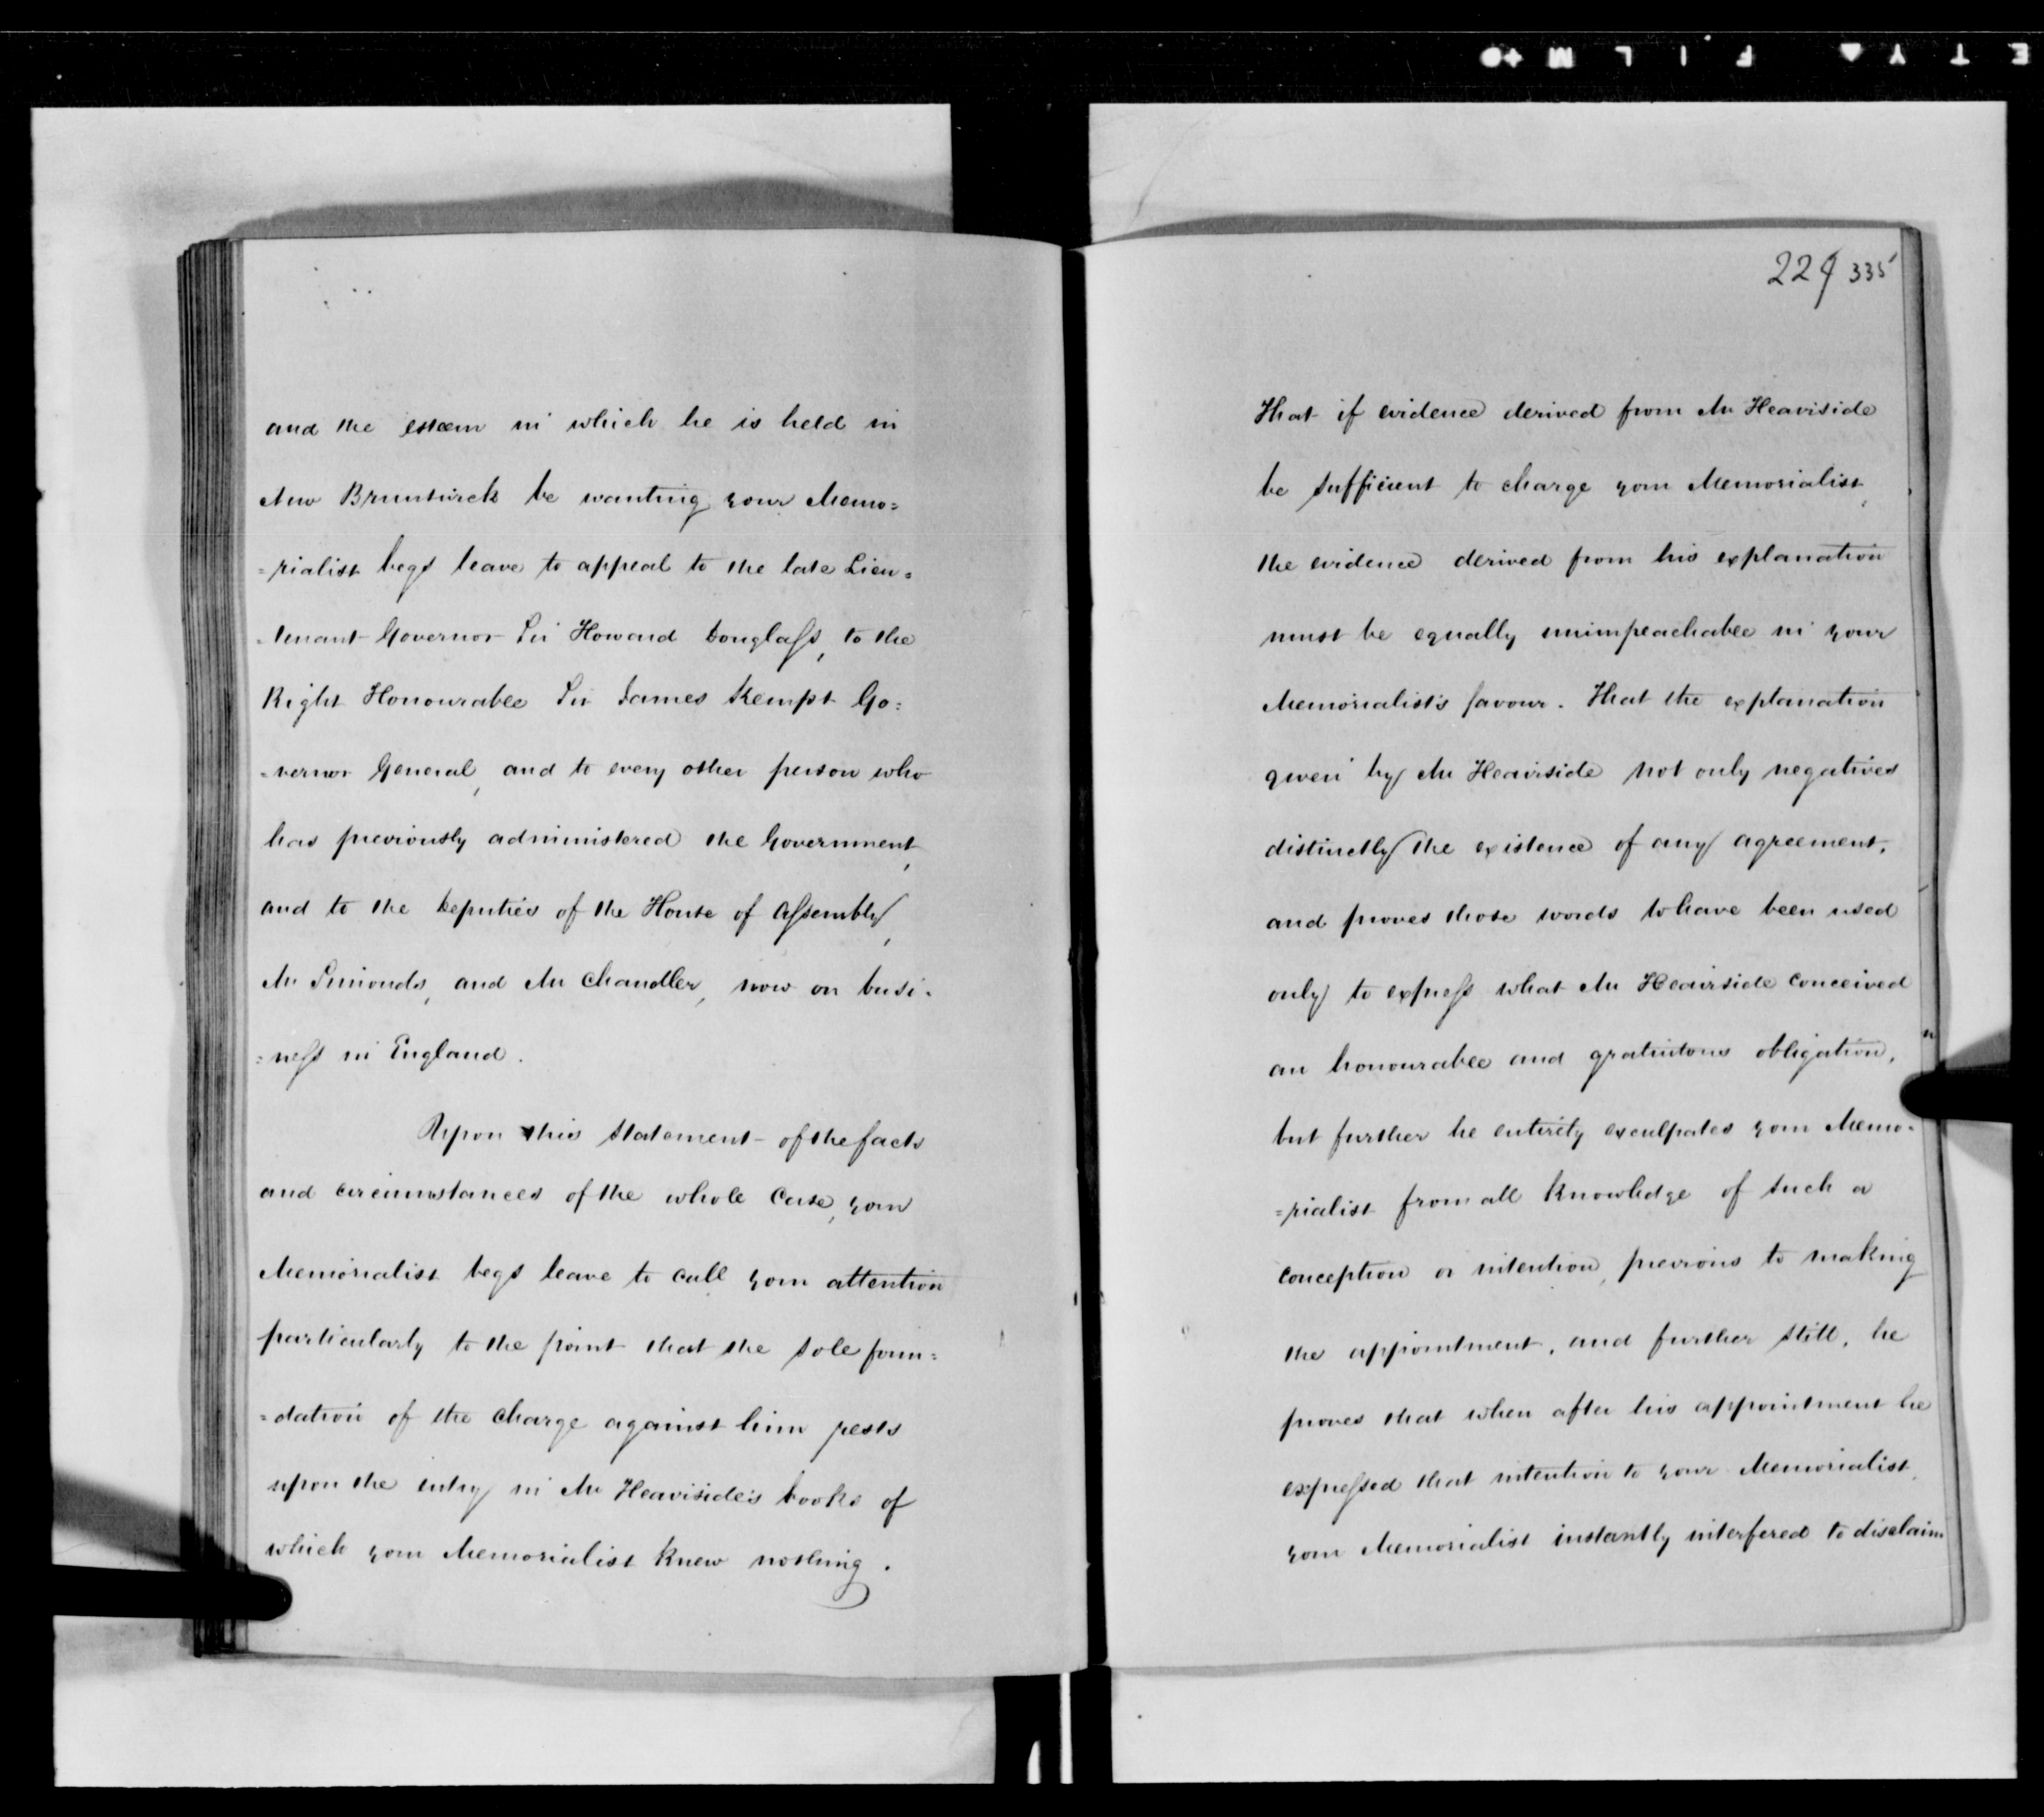 and the esteem in which he is held in
New Brunswick be wanting your Memo=
=rialist begs leave to appeal to the late Lieu=
=tenant Governor Sir Howard Douglass, to the
Right Honourable Sir James Kempt Go=
=vernor General, and to every other person who
has previously administered the Government,
and to the Deputies of the House of Assembly,
Mr Simonds, and Mr Chandler, now on busi=
=ness in England.
Upon this statement of the facts
and circumstances of the whole Case, your
Memorialist begs leave to call your attention
particularly to the point that the sole foun=
=dation of the charge against him rests
upon the entry in Mr Heaviside's books of
which your Memorialist knew nothing.
229 335
That if evidence derived from Mr Heaviside
be sufficient to charge your Memorialist,
the evidence derived from his explanation
must be equally unimpeachable in your
Memorialist's favour. That the explanation
given by Mr Heaviside not only negatives
distinctly the existence of any agreement,
and proves those words to have been used
only to express what Mr Heaviside conceived
an honourable and gratuitous obligation,
but further he entirely exculpates your Memo=
=rialist from all knowledge of such a
conception or intention, previous to making
the appointment, and further still, he
proves that when after his appointment he
expressed that intention to your Memorialist,
your Memorialist instantly interfered to disclaim
ETY FILM